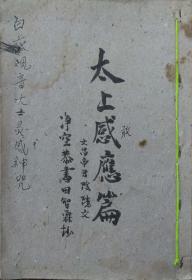 太上感應篇
文昌帝君陰隲文
淨空恭書田智霖抄
白衣觀音大士灵感神咒